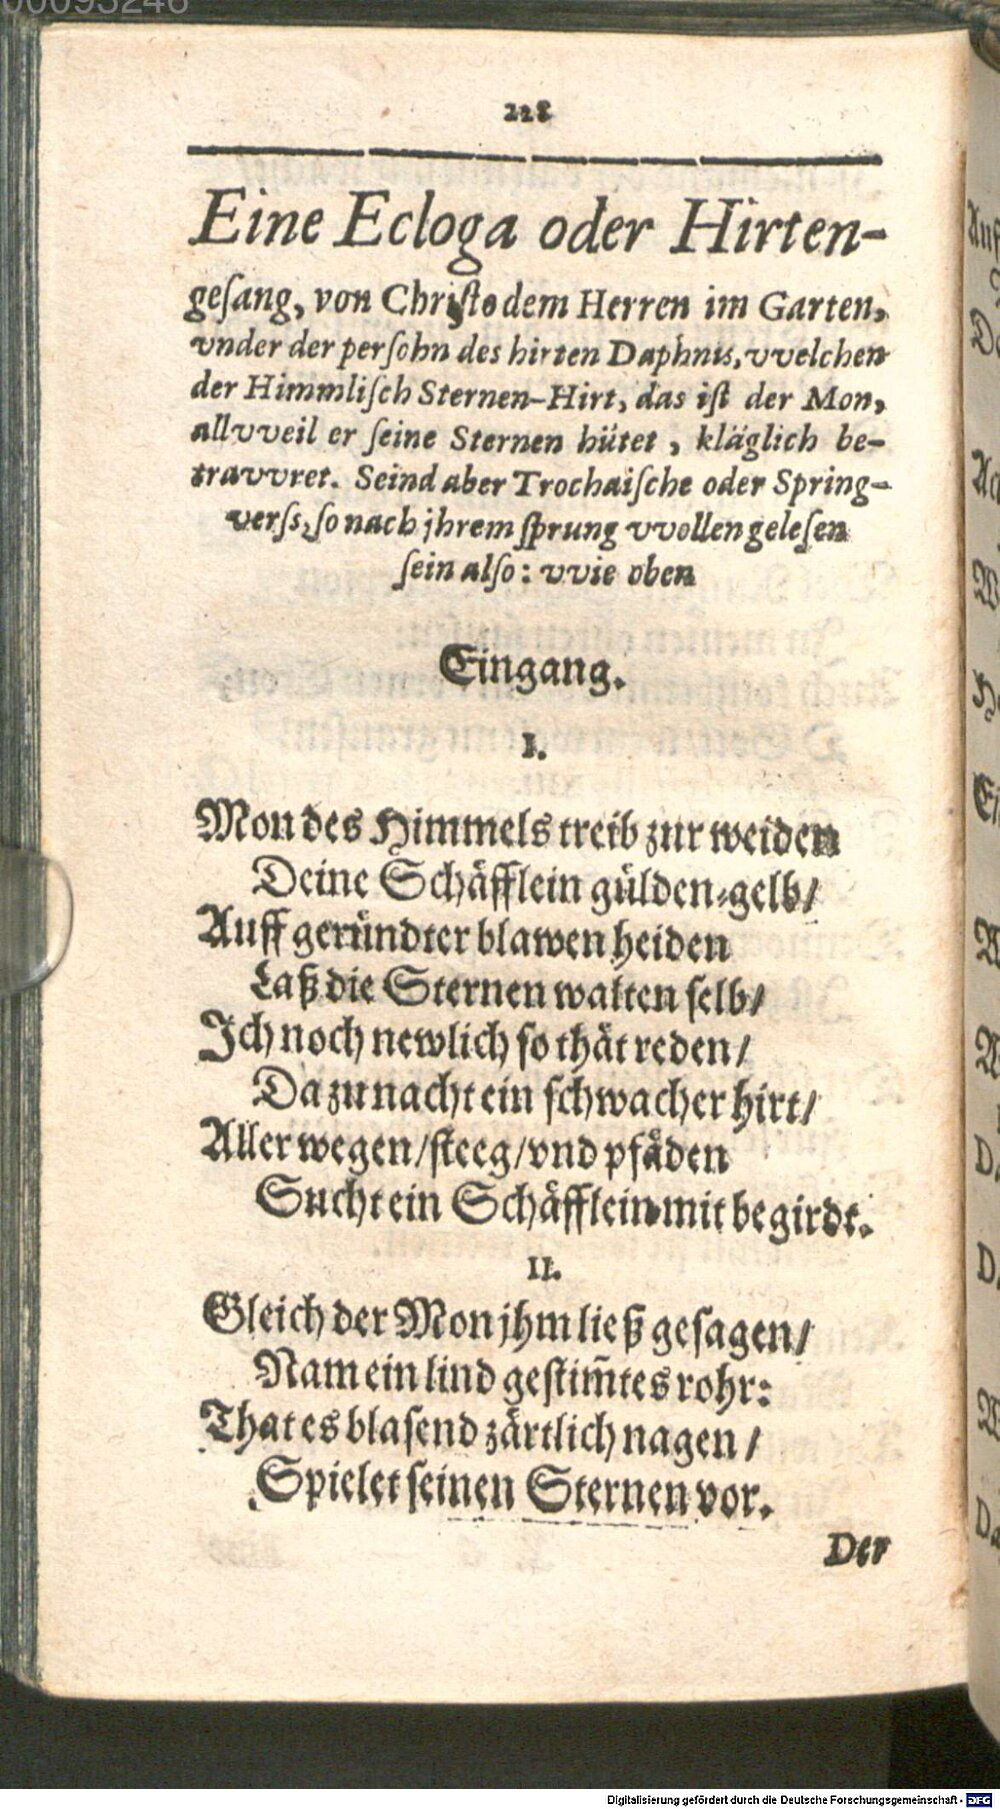 00095246
228
Eine Ecloga oder Hirten-
geſang, von Chriſto dem Herren im Garten,
vnder der perſohn des hirten Daphnis, vvelchen
der Himmliſch Sternen-Hirt, das iſt der Mon,
allvveil er ſeine Sternen hütet, kläglich be-
travvret. Seind aber Trochaiſche oder Spring-
verſs, ſo nach jhrem ſprung vvollen geleſen
ſein alſo: vvie oben
Eingang.
I.
Mon des Himmels treib zur weiden
Deine Schäfflein gülden-gelb/
Auff geründter blawen heiden
Laß die Sternen walten ſelb/
Ich noch newlich ſo thät reden/
Da zu nacht ein ſchwacher hirt/
Aller wegen/ ſteeg/ vnd pfåden
Sucht ein Schäfflein mit begirdt.
II.
Gleich der Mon jhm ließ geſagen/
Nam ein lind geſtim̃tes rohr:
That es blaſend zärtlich nagen/
Spielet ſeinen Sternen vor.
Der
Digitalisierung gefördert durch die Deutsche Forschungsgemeinschaft - DFG